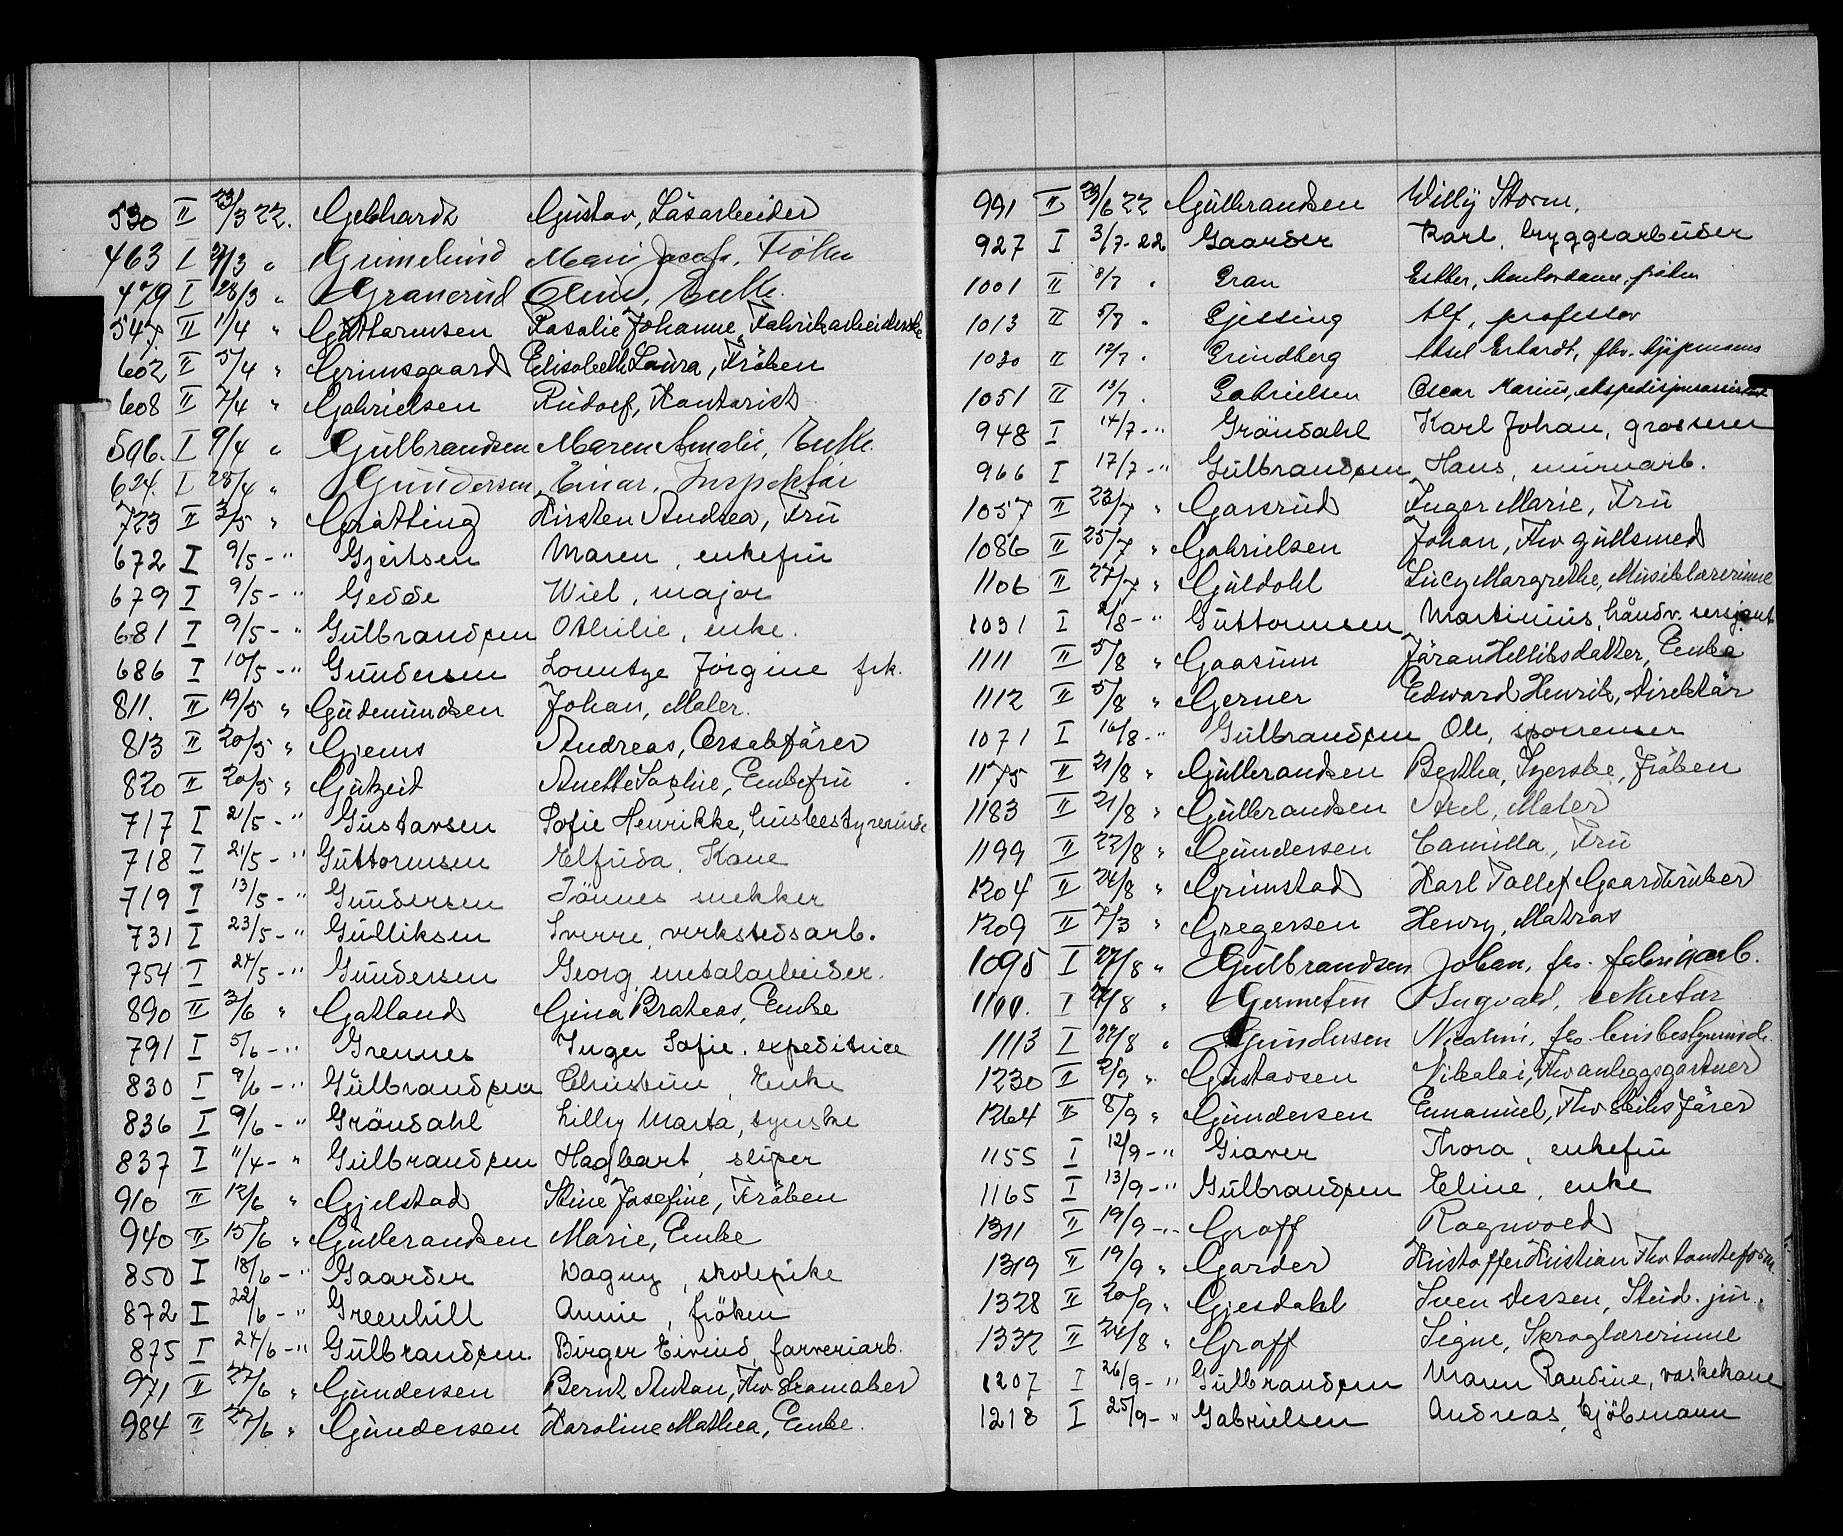 530 II 23/3 22. Gebhardt Gustav, Låsarbeider
463 I 27/3 " Grimelund Marie Jacob. Frøken
479 I 28/3 " Granerud Eline, Enke.
547. II 1/4 " Guttormsen Rosalie Johanne, Fabrikarbeiderske
602 II 5/4 " Grimsgaard Elisabeth Laura, Frøken
608 II 7/4 " Gabrielsen Rudolf, Kontorist
506. I 9/4 " Gulbrandsen Maren Amalie, Enke.
624. I 25/4 " Gundersen, Einar, Inspektør
723 II 3/5 " Grøtting Kirsten Andrea, Fru
672 I 9/5 - " Gjertsen Maren, enkefru
679 I 9/5 - " Gedde Wiel, major
681 I 9/5 - " Gulbrandsen Othilie, enke.
686 I 10/5 - " Gundersen Lorentze Jörgine frk.
811. II 19/5 " Gudmundsen Johan, Maler.
813 II 20/5 " Gjems Andreas, Orsakfører
820 II 20/5 " Gutzeit Anette Sophie, Enkefru
717 I 21/5 - " Gustavsen Sofie Henrikke, husbestyrerinde
718 I 21/5 - " Guttormsen Elfrida, Kone
719 I 13/5 - " Gundersen Tönnes snekker
731 I 23/5 - " Gulliksen Sverre, verkstedsarb.
754 I 24/5 - " Gundersen Georg, metalarbeider.
890 II 3/6 " Gatland Gina Brateas, Enke
791 I 5/6 - " Grennes Inger Sofie, expeditrice
830 I 9/6 - " Gulbrandsen Christine, Enke
836 I 9/6 - " Gröndahl Lilly Marta, syerske
837 I 11/4 - " Gulbrandsen Hagbart, sliper
910 II 12/6 " Gjelstad Stine Josefine, Frøken
940 II 15/6 " Gulbrandsen Marie, Enke
850 I 18/6 - " Gaarder Dagny, skolepike
872 I 22/6 - " Greenhill Annie, fröken
875 I 24/6 - " Gulbrandsen Birger Eivind, farveriarb.
971 II 27/6 " Gundersen Bernt Anton, Fhv Skomaker
984 II 27/6 " Gundersen Karoline Mathea, Enke.
991 II 23/6 22 Gulbrandsen Willy Storm.
927 I 3/7 - 22 Gaarder Karl, bryggearbeider
1001 II 8/7 " Gran Esther, kontordame, frøken
1013 II 5/7 " Gjessing Alf, professor
1030 II 12/7 . Grindberg Aksel Erhardt, fhv. kjøpmann
1051 II 13/7 . Gabrielsen Oscar Marius, ekspedisjonsassistent
948 I 14/7 - " Gröndahl Karl Johan, grosserer
966 I 17/7 - " Gulbrandsen, Hans, murerarb.
1057 II 23/7 " Gaverud Inger Marie, Fru
1086 II 25/7 " Gabrielsen Johan, Fhv gullsmed
1106 II 27/7 " Guldahl Lucy Margrethe, Musiklærerinne
1031 I 2/8 - " Guttormsen Martinius, håndv. sersjant
1111 II 5/8 " Gaasum Jøran Hellilsdatter, Enke
1112 II 5/8 " Gerner Edward Henrik, Direktør
1071 I 16/8 - " Gulbrandsen Ole, sporrenser
1175 II 21/8 " Gulbrandsen Bertha, Syerske, Frøken
1183 II 21/8 " Gulbrandsen Axel, Maler
1199 II 22/8 " Gundersen Camilla, Fru
1204 II 24/8 " Grimstad Karl Tollef Gaardbruker
1209 II 7/3 " Gregersen Henry, Matros
1095 I 27/8 " Gulbrandsen Johan, fv. fabrikarb.
I 27/8 " Germeten Ingvald,
1113 I 27/8 " Gundersen Nicoline, fv. husbestyrerinde
1230 II 2/9 " Gustavsen Nikolai, Fhv anleggsgartner
1264 II 8/9 " Gundersen Emanuel, Fhv skibsfører
1155 I 12/9 - " Giæver Thora, enkefru
1165 I 13/9 - " Gulbrandsen Eline, enke
1311 II 19/9 - " Graff Ragnvald
1319 II 19/9 " Garder Kristoffer Kristian Fhv tomteform.
1328 II 20/9 " Gjesdahl Sven Dessen, Stud. jur.
1332 II 24/8 " Graff Signe, Skroglærerinne
1207 I 26/9 - " Gulbrandsen Maren Randine, vaskekone
1218 I 25/9 - " Gabrielsen Andreas, kjöbmann